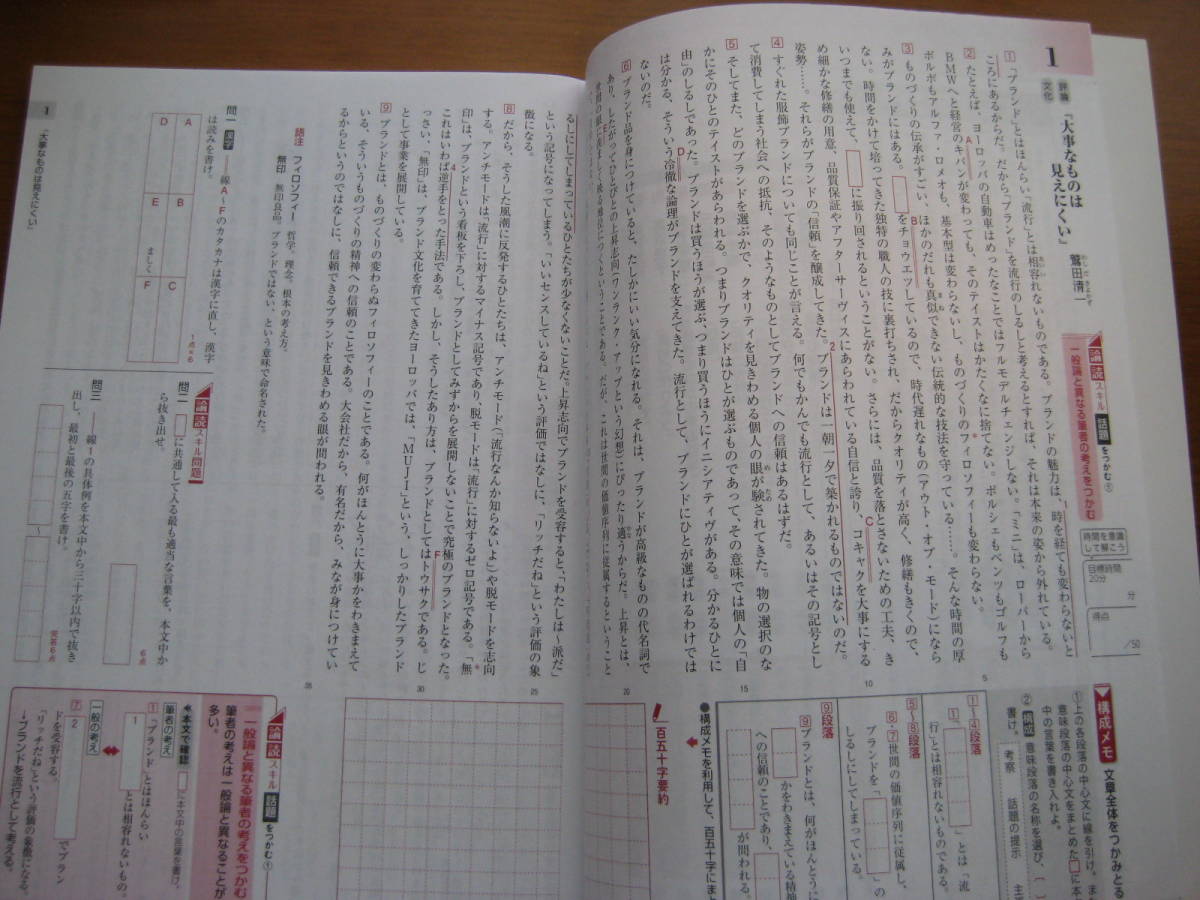 1
評論
文化
『大事なものは
見えにくい』
鷲田清一
わしだきよかず
論読スキル 話題をつかむ①
一般論と異なる筆者の考えをつかむ
時間を意識
して解こう
目標時間
20分
分
得点
/50
1 「ブランド」とはほんらい「流行」とは相容れないものである。ブランドの魅力は、時を経ても変わらないと
ころにあるからだ。だから「ブランド」を流行のしるしと考えるとすれば、それは本来の姿から外れている。
2 たとえば、ヨーロッパの自動車はめったなことではフルモデルチェンジしない。「ミニ」は、ローバーから
BMWへと経営のキバンが変わっても、そのテイストはかたくなに捨てない。ポルシェもベンツもゴルフも
ボルボもアルファ・ロメオも、基本型は変わらないし、ものづくりのフィロソフィーも変わらない。
3 ものづくりの伝承がすごい。ほかのだれも真似できない伝統的な技法を守っている……。そんな時間の厚
みがブランドにはある。 をチョウエツしているので、時代遅れなもの(アウト・オブ・モード)になら
ない。時間をかけて培ってきた独特の職人の技に裏打ちされ、だからクオリティが高く、修繕もきくので、
いつまでも使えて、 に振り回されるということがない。さらには、品質を落とさないための工夫、き
め細かな修繕の用意、品質保証やアフターサーヴィスにあらわれている自信と誇り、コキャクを大事にする
姿勢……。それらがブランドの「信頼」を醸成してきた。ブランドは一朝一夕で築かれるものではないのだ。
4 すぐれた服飾ブランドについても同じことが言える。何でもかんでも流行として、あるいはその記号とし
て消費してしまう社会への抵抗、そのようなものとしてブランドへの信頼はあるはずだ。
5 そしてまた、どのブランドを選ぶかで、クオリティを見きわめる個人の眼が験されてきた。物の選択のな
かにそのひとのテイストがあらわれる。つまりブランドはひとが選ぶものであって、その意味では個人の「自
由」のしるしであった。ブランドは買うほうが選ぶ、つまり買うほうにイニシアティヴがある。分かるひとに
は分かる、そういう冷徹な論理がブランドを支えてきた。流行として、ブランドにひとが選ばれるわけでは
ないのだ。
6 ブランド品を身につけていると、たしかにいい気分になれる。それは、ブランドが高級なものの代名詞で
あり、したがってひとびとの上昇志向(ワンランク・アップという幻想)にぴったり適うからだ。上昇とは、
るしにしてしまっているひとたちが少なくないことだ。上昇志向でブランドを受容すると、「わたしは〜派だ」
という記号になってしまう。「いいセンスしているね」という評価ではなしに、「リッチだね」という評価の象
徴になる。
8 だから、そうした風潮に反発するひとたちは、アンチモード(「流行なんか知らないよ」)や脱モードを志向
する。アンチモードは「流行」に対するマイナス記号であり、脱モードは「流行」に対するゼロ記号である。「無
印」は、ブランドという看板を下ろし、ブランドとしてみずからを展開しないことで究極のブランドとなった。
これはいわば逆手をとった手法である。しかし、そうしたあり方は、ブランドとしてはトウサクである。じ
っさい、「無印」は、ブランド文化を育ててきたヨーロッパでは、「MUJI」という、しっかりしたブランド
として事業を展開している。
9 ブランドとは、ものづくりの変わらぬフィロソフィーのことである。何がほんとうに大事かをわきまえて
いる、そういうものづくりの精神への信頼のことである。大会社だから、有名だから、みなが身につけてい
るからというのではなしに、信頼できるブランドを見きわめる眼が問われる。
語注 フィロソフィー 哲学、理念、根本の考え方。
無印 無印良品。ブランドではない、という意味で命名された。
問一 漢字 ――線A〜Fのカタカナは漢字に直し、漢字
は読みを書け。
1点×6
A
B
C
D
E
ましく
F
論読スキル問題
問二 に共通して入る最も適当な言葉を、本文中か
ら抜き出せ。
6点
問三 ――線1の具体例を本文中から三十字以内で抜き
出し、最初と最後の五字を書け。
〜
完答6点
1
『大事なものは見えにくい』
構成メモ 文章全体をつかみとる
①上の各段落の中心文に線を引け。ま
意味段落の中心文をまとめた に本
中の言葉を書き入れよ。
② 構成 意味段落の名称を選び、
書け。
考察 話題の提示
1〜4段落
1「 」とは「流
行」とは相容れないものである。
5〜8段落
6・7世間の価値序列に従属し、
ブランドを「 」の
しるしにしてしまっている。
9段落
9ブランドとは、何がほんとうに
かをわきまえている精神
への信頼のことであり、
が問われる。
百五十字要約
●構成メモを利用して、百五十字にま
論読スキル 話題をつかむ①
一般論と異なる筆者の考えをつかむ
筆者の考えは一般論と異なることが
多い。
本文で確認 に本文中の言葉を書け。
筆者の考え
1「ブランド」とはほんらい
1 とは相容れないもの。
一般の考え
7 2 でブラン
ドを受容する。
「リッチだね」という評価の象徴になる。
→ブランドを流行として考える。